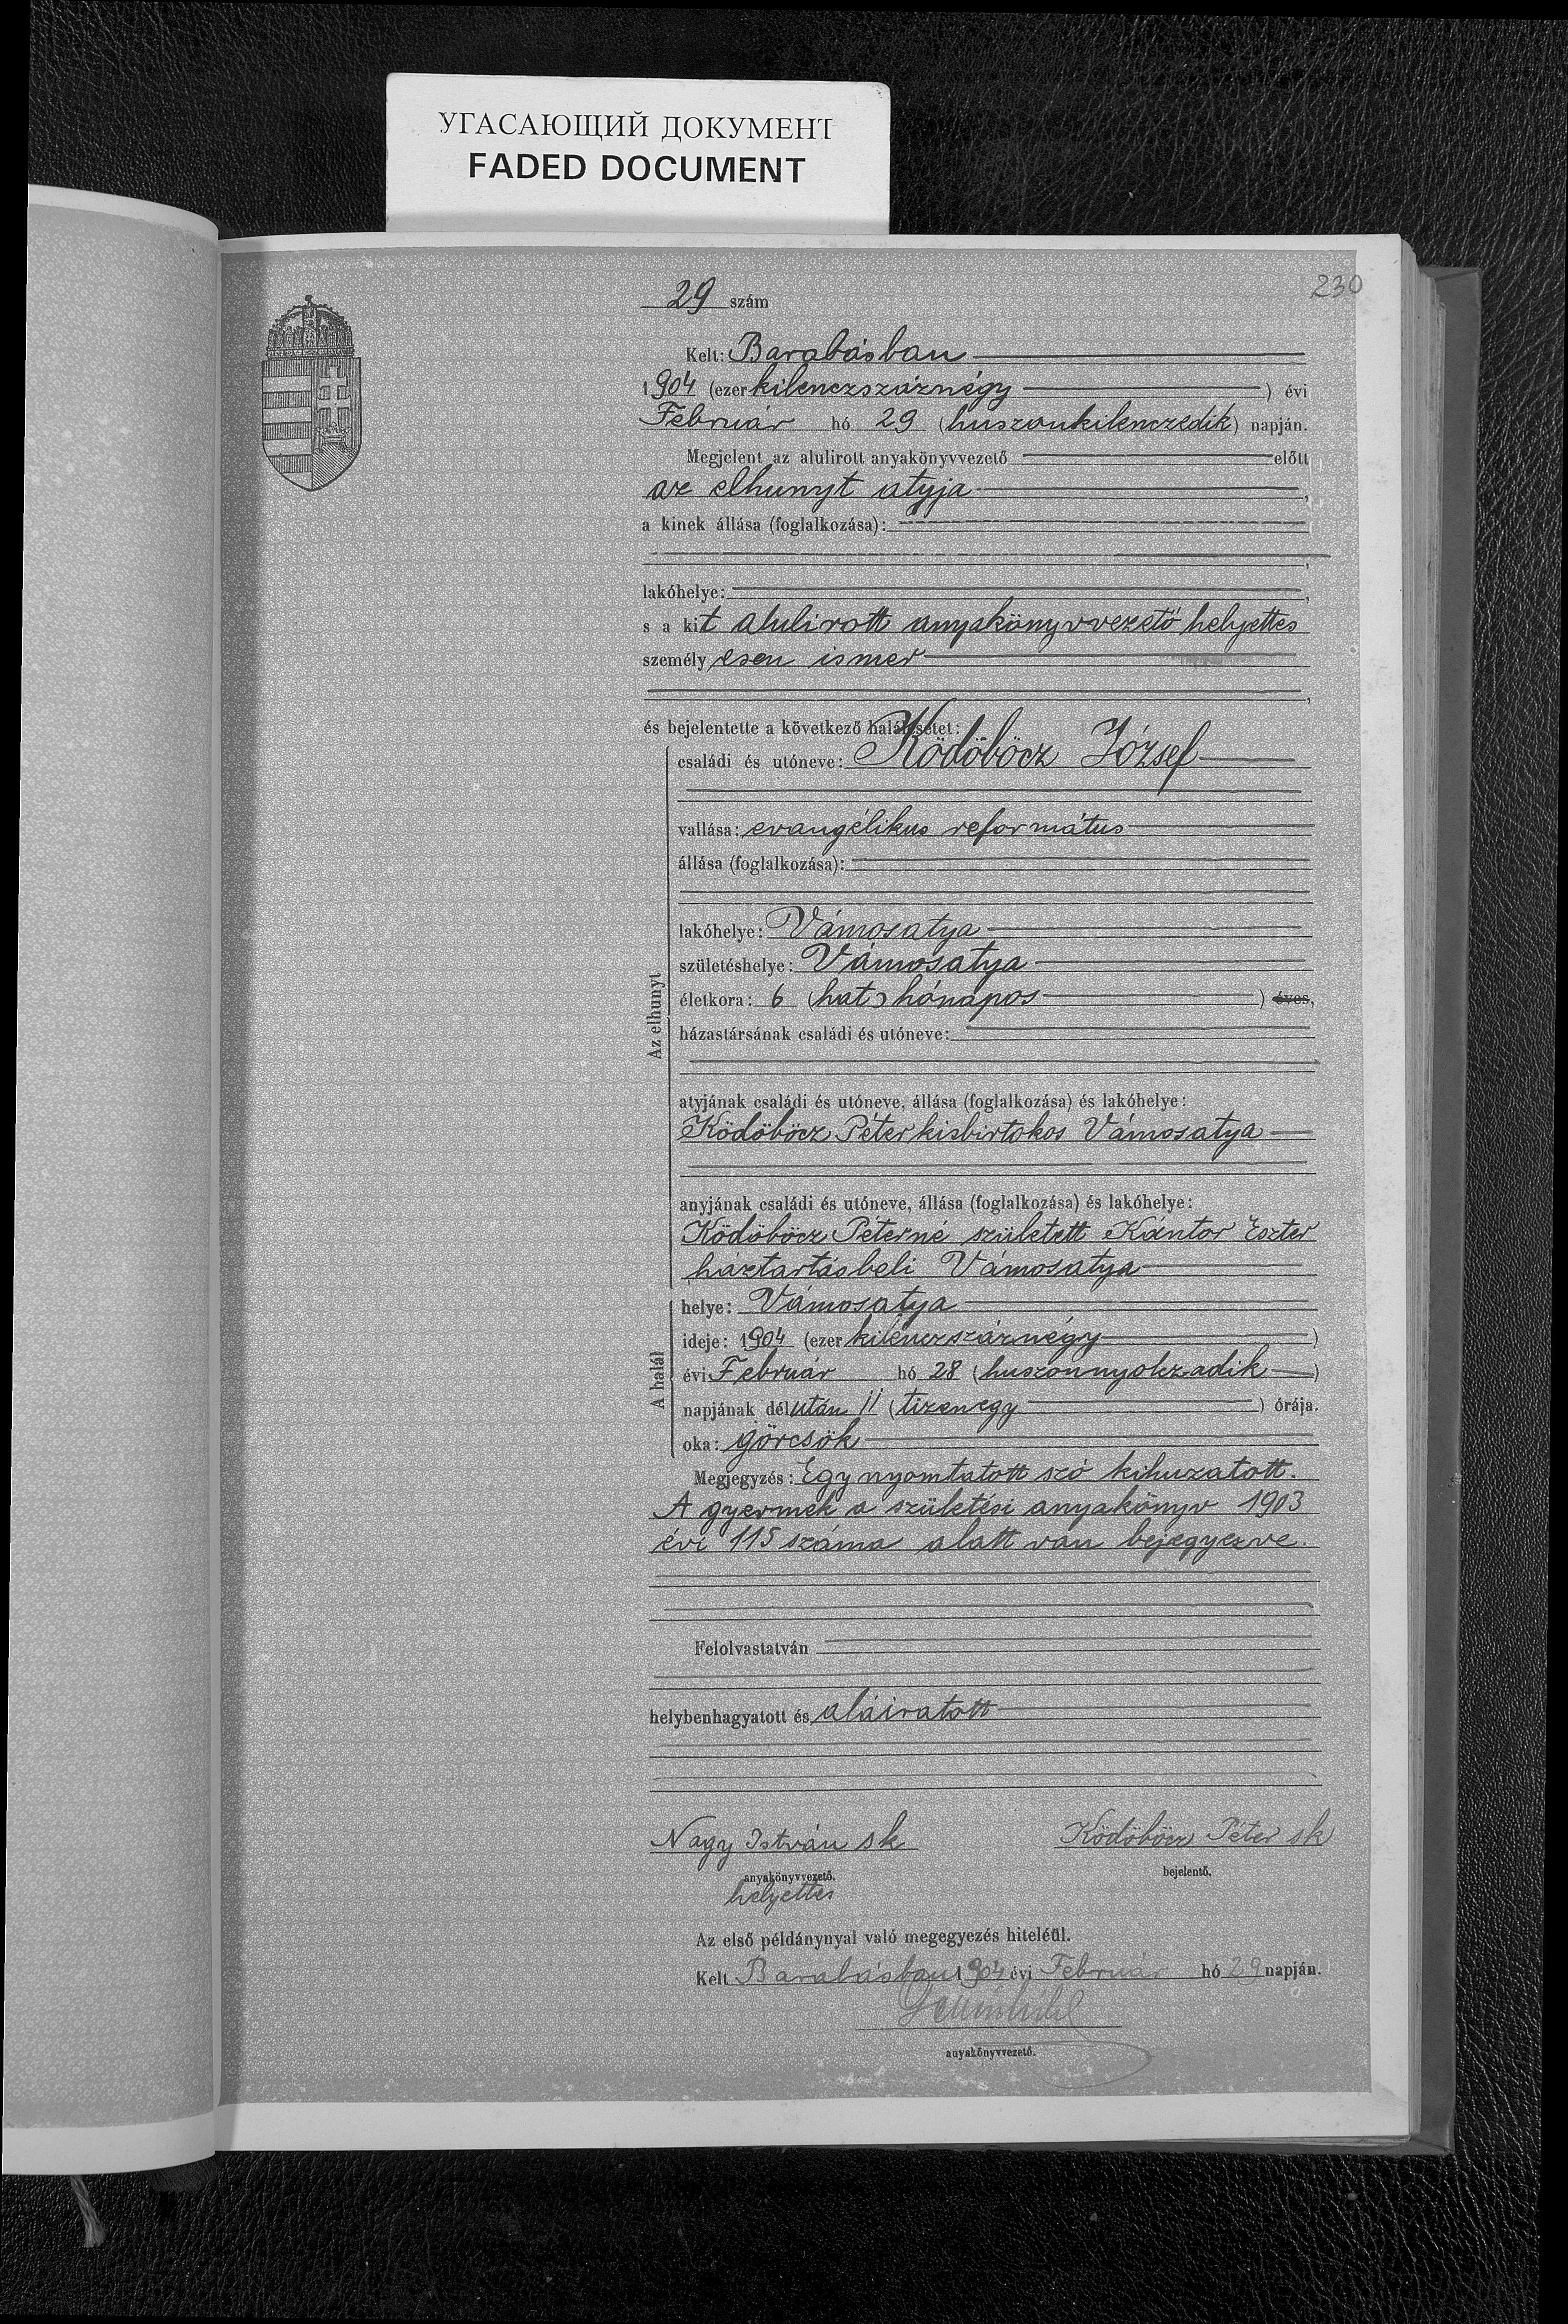 УГАСАЮЩИЙ ДОКУМЕНТ
FADED DOCUMENT
230
29 szám
Kelt: Barabásban
1904 (ezer kilenczszáznégy) évi
Február hó 29 (huszonkilenczedik) napján.
Megjelent az alulirott anyakönyvvezető előtt
az elhunyt atyja,
a kinek állása (foglalkozása):
lakóhelye:
s a kit alulirott anyakönyvvezető helyettes
személyesen ismer
és bejelentette a következő halálesetet:
Az elhunyt
családi és utóneve: Ködöböcz József
vallása: evangélikus református
állása (foglalkozása):
lakóhelye: Vámosatya
születéshelye: Vámosatya
életkora: 6 (hat) hónapos ) éves,
házastársának családi és utóneve:
atyjának családi és utóneve, állása (foglalkozása) és lakóhelye:
Ködöböcz Péter kisbirtokos Vámosatya
anyjának családi és utóneve, állása (foglalkozása) és lakóhelye:
Ködöböcz Péterné született Kántor Eszter
háztartásbeli Vámosatya
A halál
helye: Vámosatya
ideje: 1904 (ezer kilenczszáznégy)
évi Február hó 28 (huszonnyolczadik)
napjának délután 11 (tizenegy) órája.
oka: görcsök
Megjegyzés: Egy nyomtatott szó kihuzatott.
A gyermek a születési anyakönyv 1903
évi 115 száma alatt van bejegyezve.
Felolvastatván
helybenhagyatott és aláiratott
Nagy István sk
anyakönyvvezető.
helyettes
Ködöböcz Péter sk
bejelentő.
Az első példánynyal való megegyezés hiteléül.
Kelt Barabásban 1904 évi Február hó 29 napján.
anyakönyvvezető.